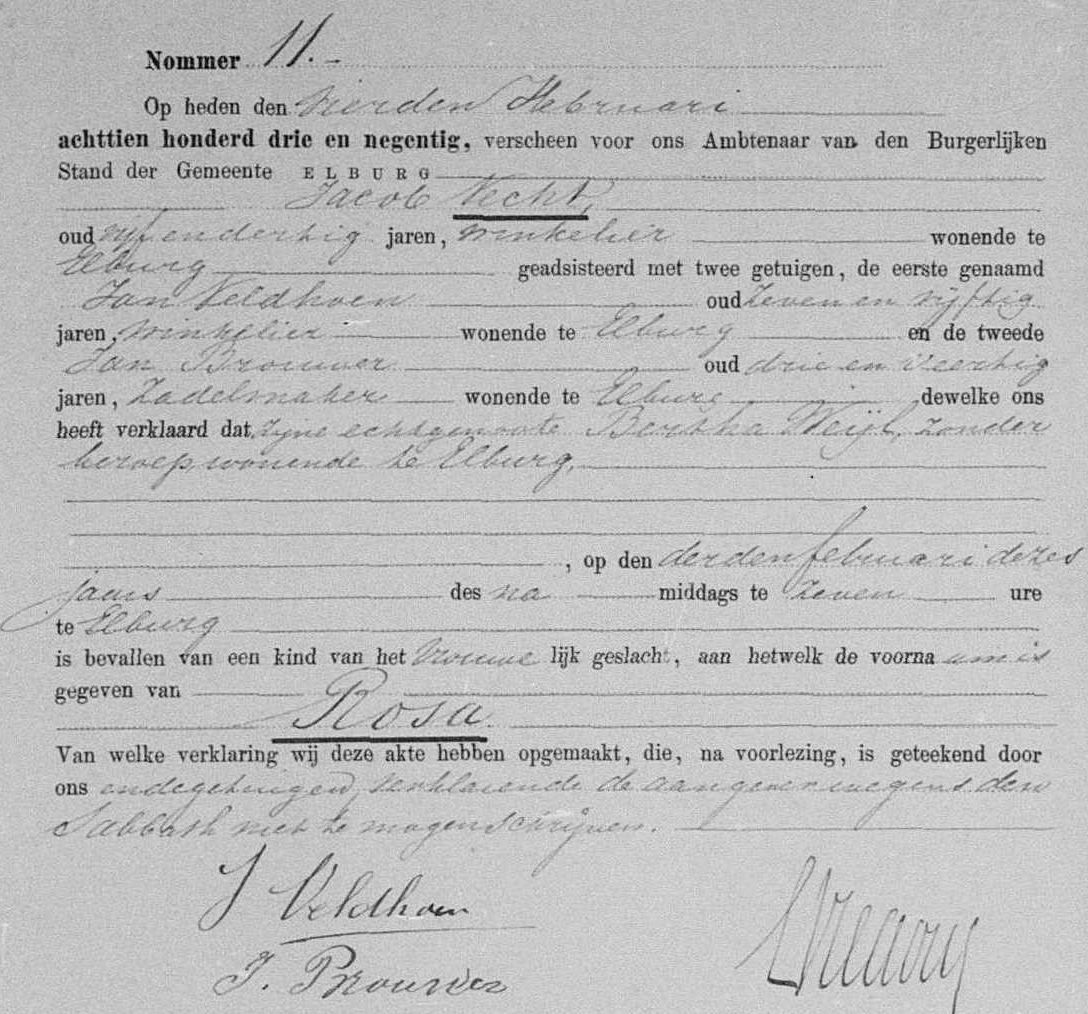 Nommer 11.-
Op heden den vierden Februari
achttien honderd drie en negentig, verscheen voor ons Ambtenaar van den Burgerlijken
Stand der Gemeente ELBURG
Jacob Vecht,
oud vijf en dertig jaren, winkelier wonende te
Elburg geadsisteerd met twee getuigen, de eerste genaamd
Jan Veldhoen oud zeven en vijftig
jaren, winkelier wonende te Elburg en de tweede
Jan Brouwer oud drie en veertig
jaren, zadelmaker wonende te Elburg dewelke ons
heeft verklaard dat zijne echtgenoote Bertha Weijl, zonder
beroep wonende te Elburg,
, op den derden februari dezes
jaars des na middags te zeven ure
te Elburg
is bevallen van een kind van het vrouwe lijk geslacht, aan hetwelk de voorna am is
gegeven van
Rosa.
Van welke verklaring wij deze akte hebben opgemaakt, die, na voorlezing, is geteekend door
ons en de getuigen, verklarende de aangever wegens den
Sabbath niet te mogen schrijven.
J Veldhoen
J. Brouwer